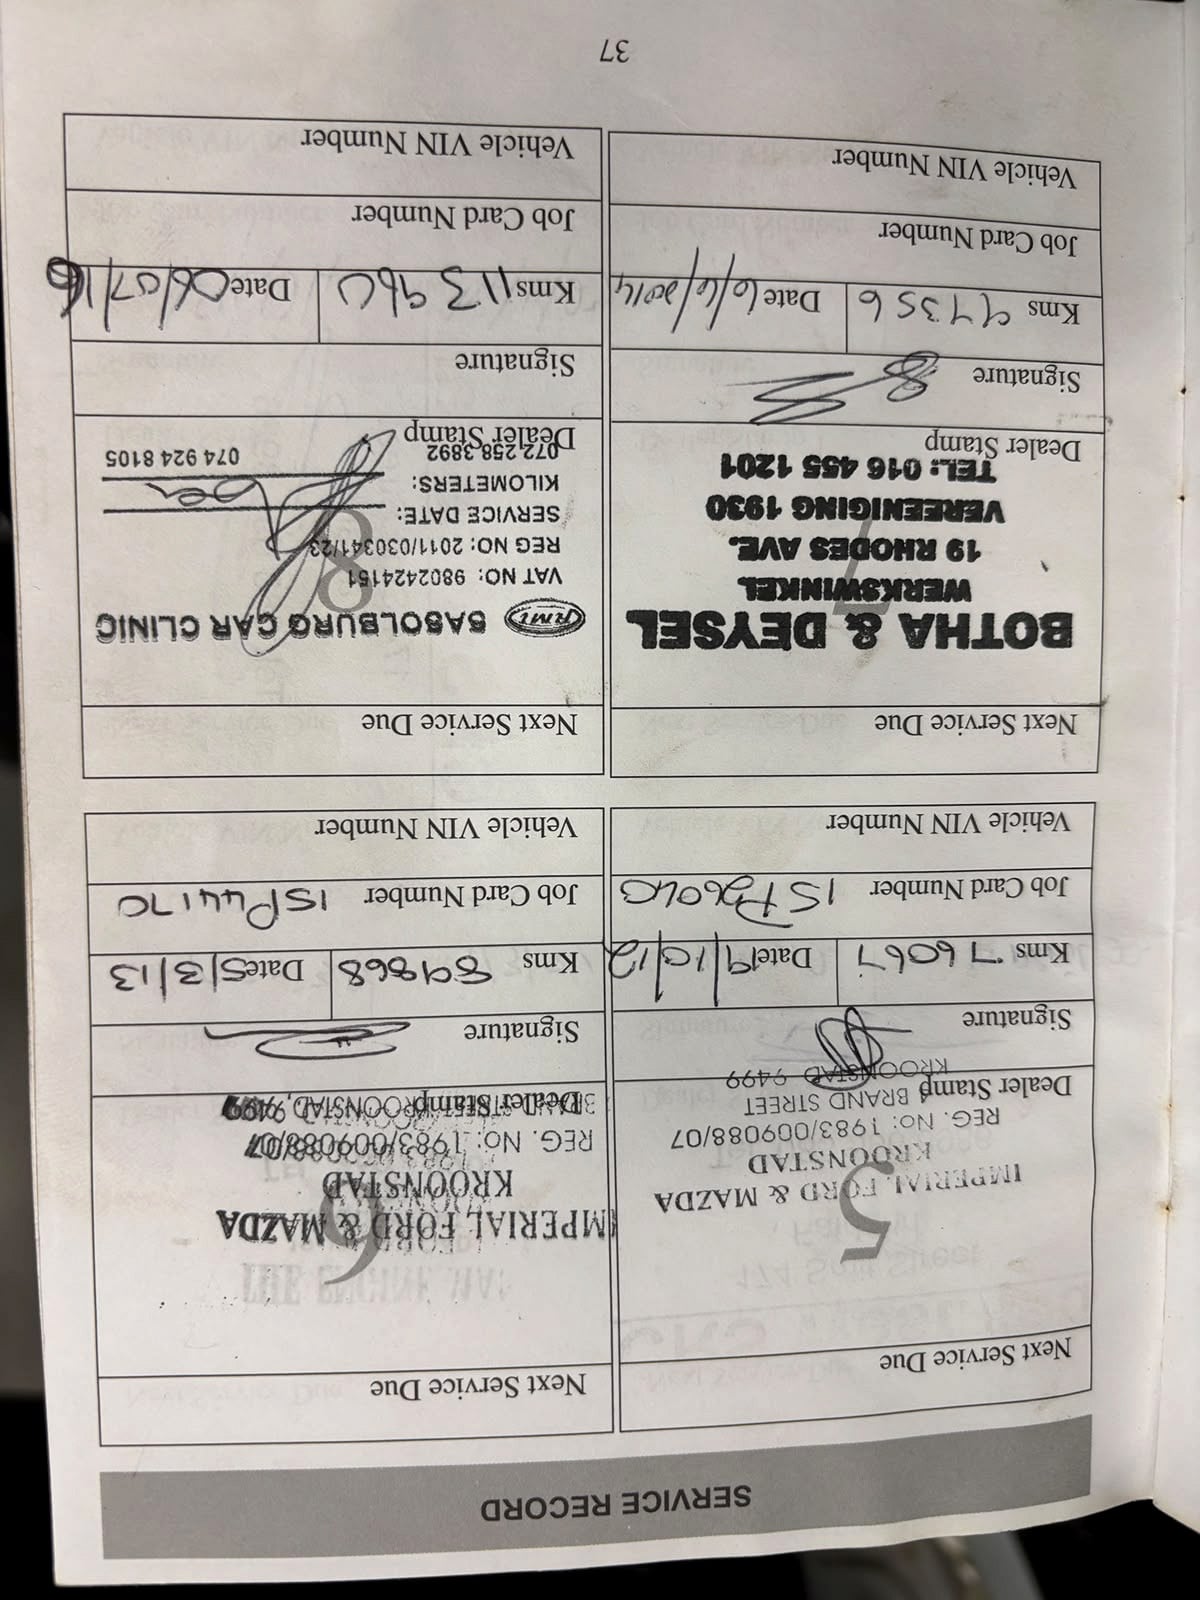 SERVICE RECORD
Next Service Due
5
IMPERIAL FORD & MAZDA
KROONSTAD
REG. No: 1983/009088/07
BRAND STREET
KROONSTAD 9499
Dealer Stamp
Signature
Kms 76067 Date 19/10/12
Job Card Number
Vehicle VIN Number
Next Service Due
6
IMPERIAL FORD & MAZDA
KROONSTAD
REG. No: 1983/009088/07
KROONSTAD, 9499
Dealer Stamp
Signature
Kms 89868 Date 5/3/13
Job Card Number ISP44170
Vehicle VIN Number
Next Service Due
7
BOTHA & DEYSEL
WERKSWINKEL
19 RHODES AVE.
VEREENIGING 1930
TEL: 016 455 1201
Dealer Stamp
Signature
Kms 97356 Date 6/6/2014
Job Card Number
Vehicle VIN Number
Next Service Due
8
RMI SASOLBURG CAR CLINIC
VAT NO: 9802424151
REG NO: 2011/030341/23
SERVICE DATE:
KILOMETERS:
072 258 3892 074 924 8105
Dealer Stamp
Signature
Kms 113960 Date 06/07/16
Job Card Number
Vehicle VIN Number
37